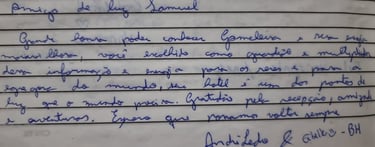 Amigo de luz Samuel
Grande honra poder conhecer Gameleira e sua energia
maravilhosa, você escolhido como guardião e multiplicador
dessa informação e energia para os seres e para a
egregora do mundo, seu hotel é um dos pontos de
luz que o mundo precisa. Gratidão pela recepção, amizade
e aventuras. Espero que possamos voltar sempre
& - BH